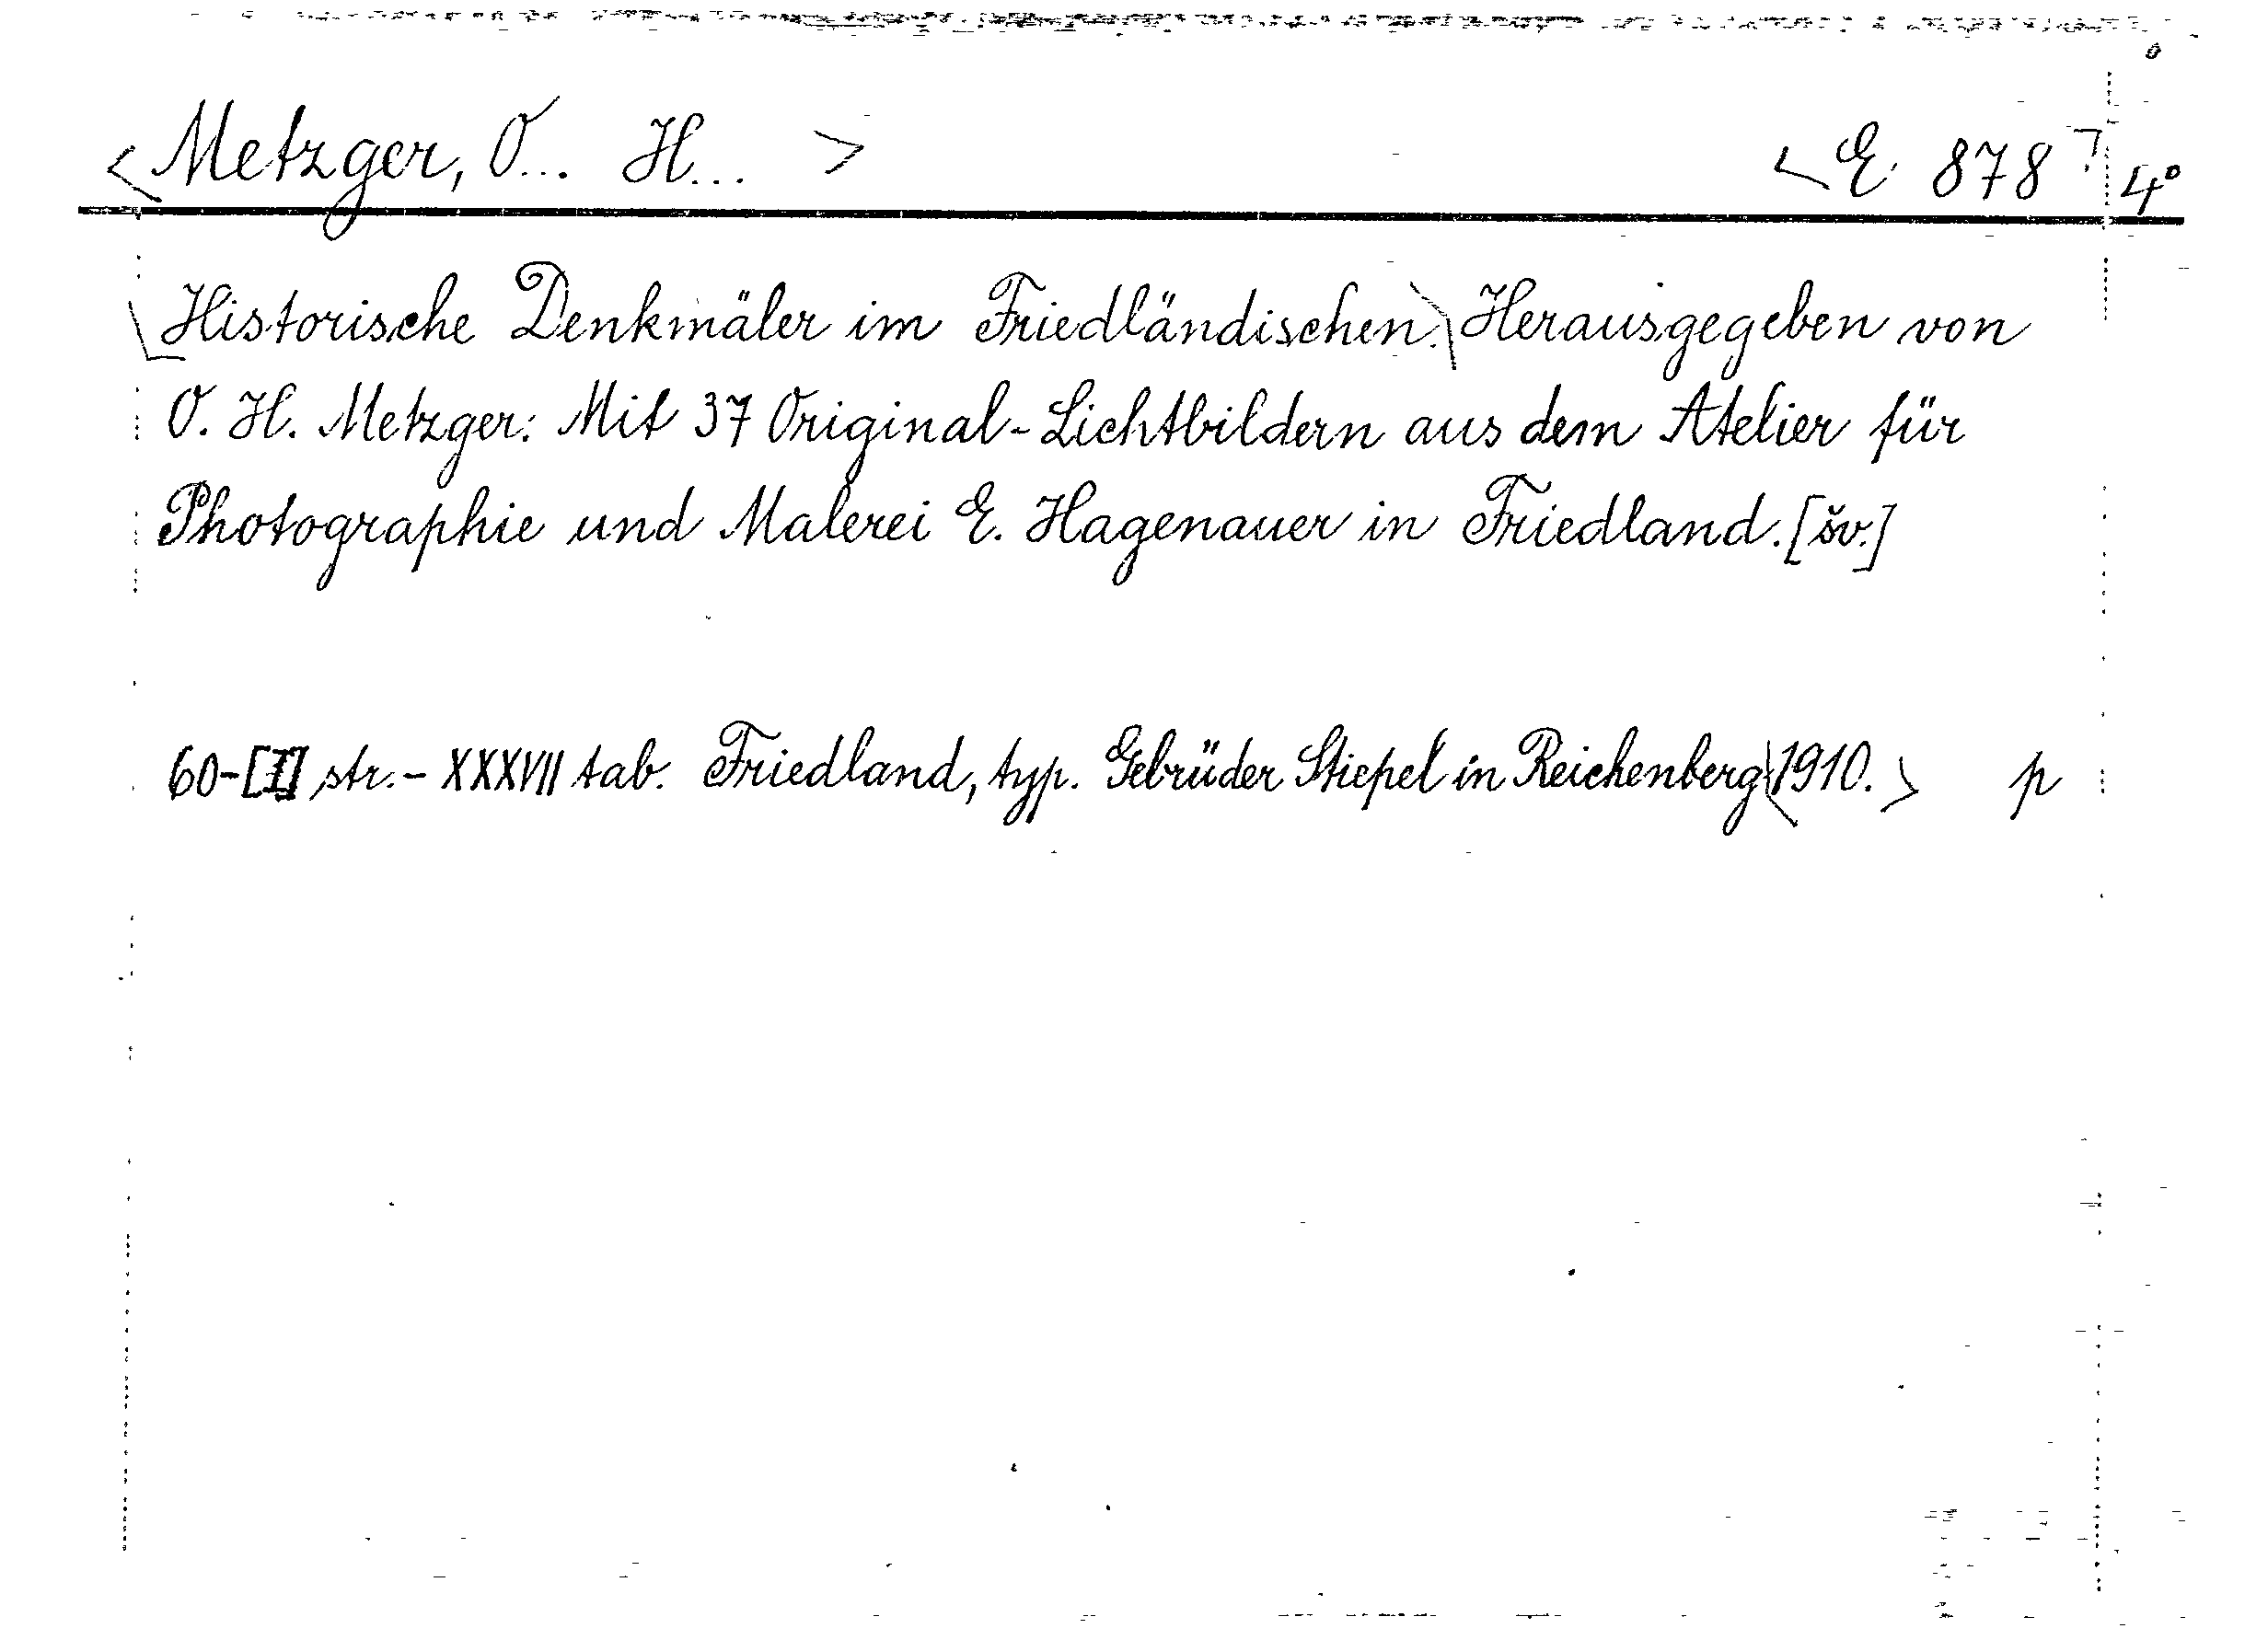 <Metzger, O... H...> <E 878 4°
Historische Denkmäler im Friedländischen. Herausgegeben von
O. H. Metzger. Mit 37 Original-Lichtbildern aus dem Atelier für
Photographie und Malerei E. Hagenauer in Friedland. [šv.]
60-[I] str.- XXXVII tab. Friedland, typ. Gebrüder Stiepel in Reichenberg 1910.> p